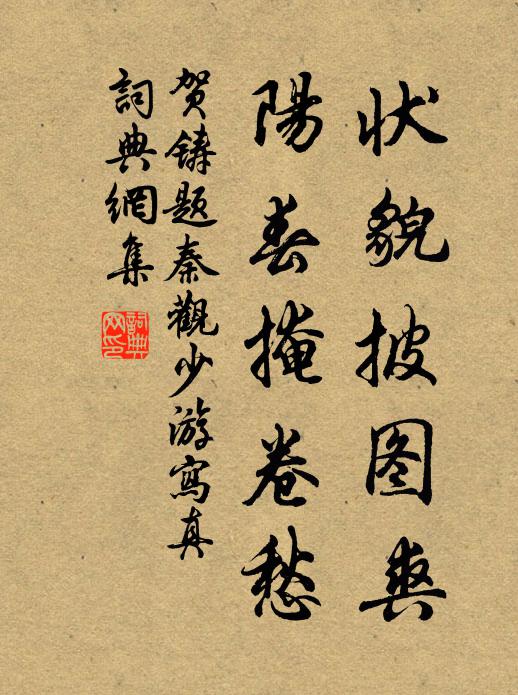 状貌披图爽
陽春掩卷愁
贺铸题秦觀少游寫真
詞典網集
詞典網印